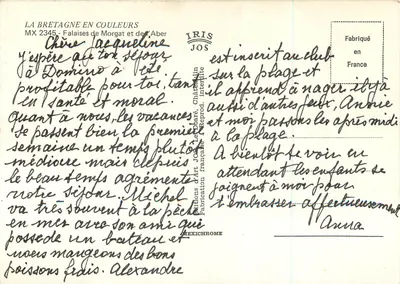 LA BRETAGNE EN COULEURS
MX 2345 - Falaises de Morgat et de l'Aber
IRIS
JOS
Fabriqué
en
France
Chère Jacqueline
J'espère que ton séjour
à Domino a été
profitable pour toi, tant
en santé et moral.
Quant à nous, les vacances
se passent bien la première
semaine un temps plutôt
médiocre mais depuis
le beau temps agrémente
notre séjour. Michel
va très souvent à la pêche
en mer avec son ami qui
possède un bateau et
nous mangeons des bons
poissons frais. Alexandre
est inscrit au club
sur la plage et
il apprend à nager il y a
aussi d'autres jeux, Annie
et moi passons les après midi
à la plage.
A bientôt te voir en
attendant les enfants se
joignent à moi pour
t'embrasser affectueusement
Anna
MEXICHROME